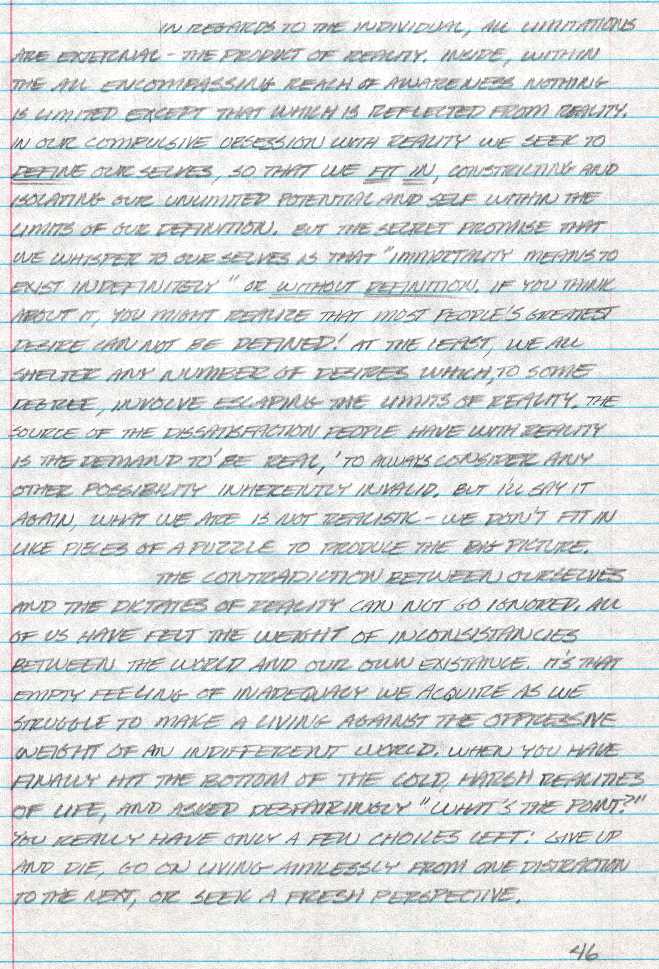 IN REGARDS TO THE INDIVIDUAL, ALL LIMITATIONS
ARE EXTERNAL - THE PRODUCT OF REALITY. INSIDE, WITHIN
THE ALL ENCOMPASSING REACH OF AWARENESS NOTHING
IS LIMITED EXCEPT THAT WHICH IS REFLECTED FROM REALITY.
IN OUR COMPULSIVE OBSESSION WITH REALITY WE SEEK TO
DEFINE OUR SELVES, SO THAT WE FIT IN, CONSTRICTING AND
ISOLATING OUR UNLIMITED POTENTIAL AND SELF WITHIN THE
LIMITS OF OUR DEFINITION. BUT THE SECRET PROMISE THAT
WE WHISPER TO OUR SELVES IS THAT "IMMORTALITY MEANS TO
EXIST INDEFINITELY" OR WITHOUT DEFINITION. IF YOU THINK
ABOUT IT, YOU MIGHT REALIZE THAT MOST PEOPLE'S GREATEST
DESIRE CAN NOT BE DEFINED! AT THE LEAST, WE ALL
SHELTER ANY NUMBER OF DESIRES WHICH, TO SOME
DEGREE, INVOLVE ESCAPING THE LIMITS OF REALITY. THE
SOURCE OF THE DISSATISFACTION PEOPLE HAVE WITH REALITY
IS THE DEMAND TO 'BE REAL,' TO ALWAYS CONSIDER ANY
OTHER POSSIBILITY INHERENTLY INVALID. BUT I'LL SAY IT
AGAIN, WHAT WE ARE IS NOT REALISTIC - WE DON'T FIT IN
LIKE PIECES OF A PUZZLE TO PRODUCE THE BIG PICTURE.
THE CONTRADICTION BETWEEN OURSELVES
AND THE DICTATES OF REALITY CAN NOT GO IGNORED. ALL
OF US HAVE FELT THE WEIGHT OF INCONSISTANCIES
BETWEEN THE WORLD AND OUR OWN EXISTANCE. IT'S THAT
EMPTY FEELING OF INADEQUACY WE ACQUIRE AS WE
STRUGGLE TO MAKE A LIVING AGAINST THE OPPRESSIVE
WEIGHT OF AN INDIFFERENT WORLD. WHEN YOU HAVE
FINALLY HIT THE BOTTOM OF THE COLD, HARSH REALITIES
OF LIFE, AND ASKED DESPAIRINGLY "WHAT'S THE POINT?"
YOU REALLY HAVE ONLY A FEW CHOICES LEFT: GIVE UP
AND DIE, GO ON LIVING AIMLESSLY FROM ONE DISTRACTION
TO THE NEXT, OR SEEK A FRESH PERSPECTIVE.
46